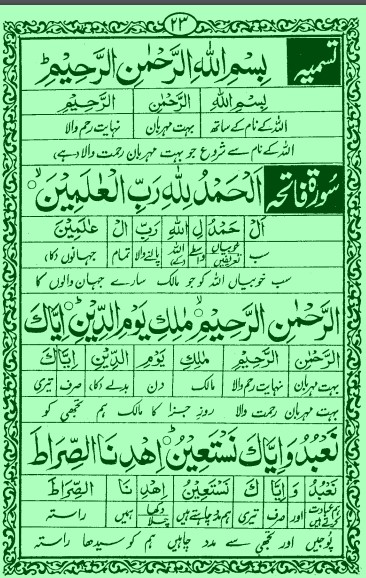 ۲۳
تسمیہ بِسْمِ اللهِ الرَّحْمٰنِ الرَّحِیْمِ
بِسْمِ اللهِ الرَّحْمٰنِ الرَّحِیْمِ
اللہ کے نام کے ساتھ بہت مہربان نہایت رحم والا
اللہ کے نام سے شروع جو بہت مہربان رحمت والا (ہے)
سورۃ فاتحہ اَلْحَمْدُ لِلّٰهِ رَبِّ الْعٰلَمِیْنَ ۙ
اَلْ حَمْدُ لِ اللهِ رَبِّ الْ عٰلَمِیْنَ
سب خوبیاں تعریفیں واسطے اللہ (کے) پالنے والا تمام جہانوں (کا)
سب خوبیاں اللہ کو جو مالک سارے جہان والوں کا
الرَّحْمٰنِ الرَّحِیْمِ ۙ مٰلِكِ یَوْمِ الدِّیْنِ ؕ اِیَّاكَ
الرَّحْمٰنِ الرَّحِیْمِ مٰلِكِ یَوْمِ الدِّیْنِ اِیَّا كَ
بہت مہربان نہایت رحم والا مالک دن بدلے (کا) صرف تیری
بہت مہربان رحمت والا روزِ جزا کا مالک ہم تجھی کو
نَعْبُدُ وَ اِیَّاكَ نَسْتَعِیْنُ ؕ اِهْدِنَا الصِّرَاطَ
نَعْبُدُ وَ اِیَّا كَ نَسْتَعِیْنُ اِهْدِ نَا الصِّرَاطَ
ہم عبادت کرتے ہیں اور صرف تیری ہم مدد چاہتے ہیں دکھا چلا ہمیں راستہ
پوجیں اور تجھی سے مدد چاہیں ہم کو سیدھا راستہ